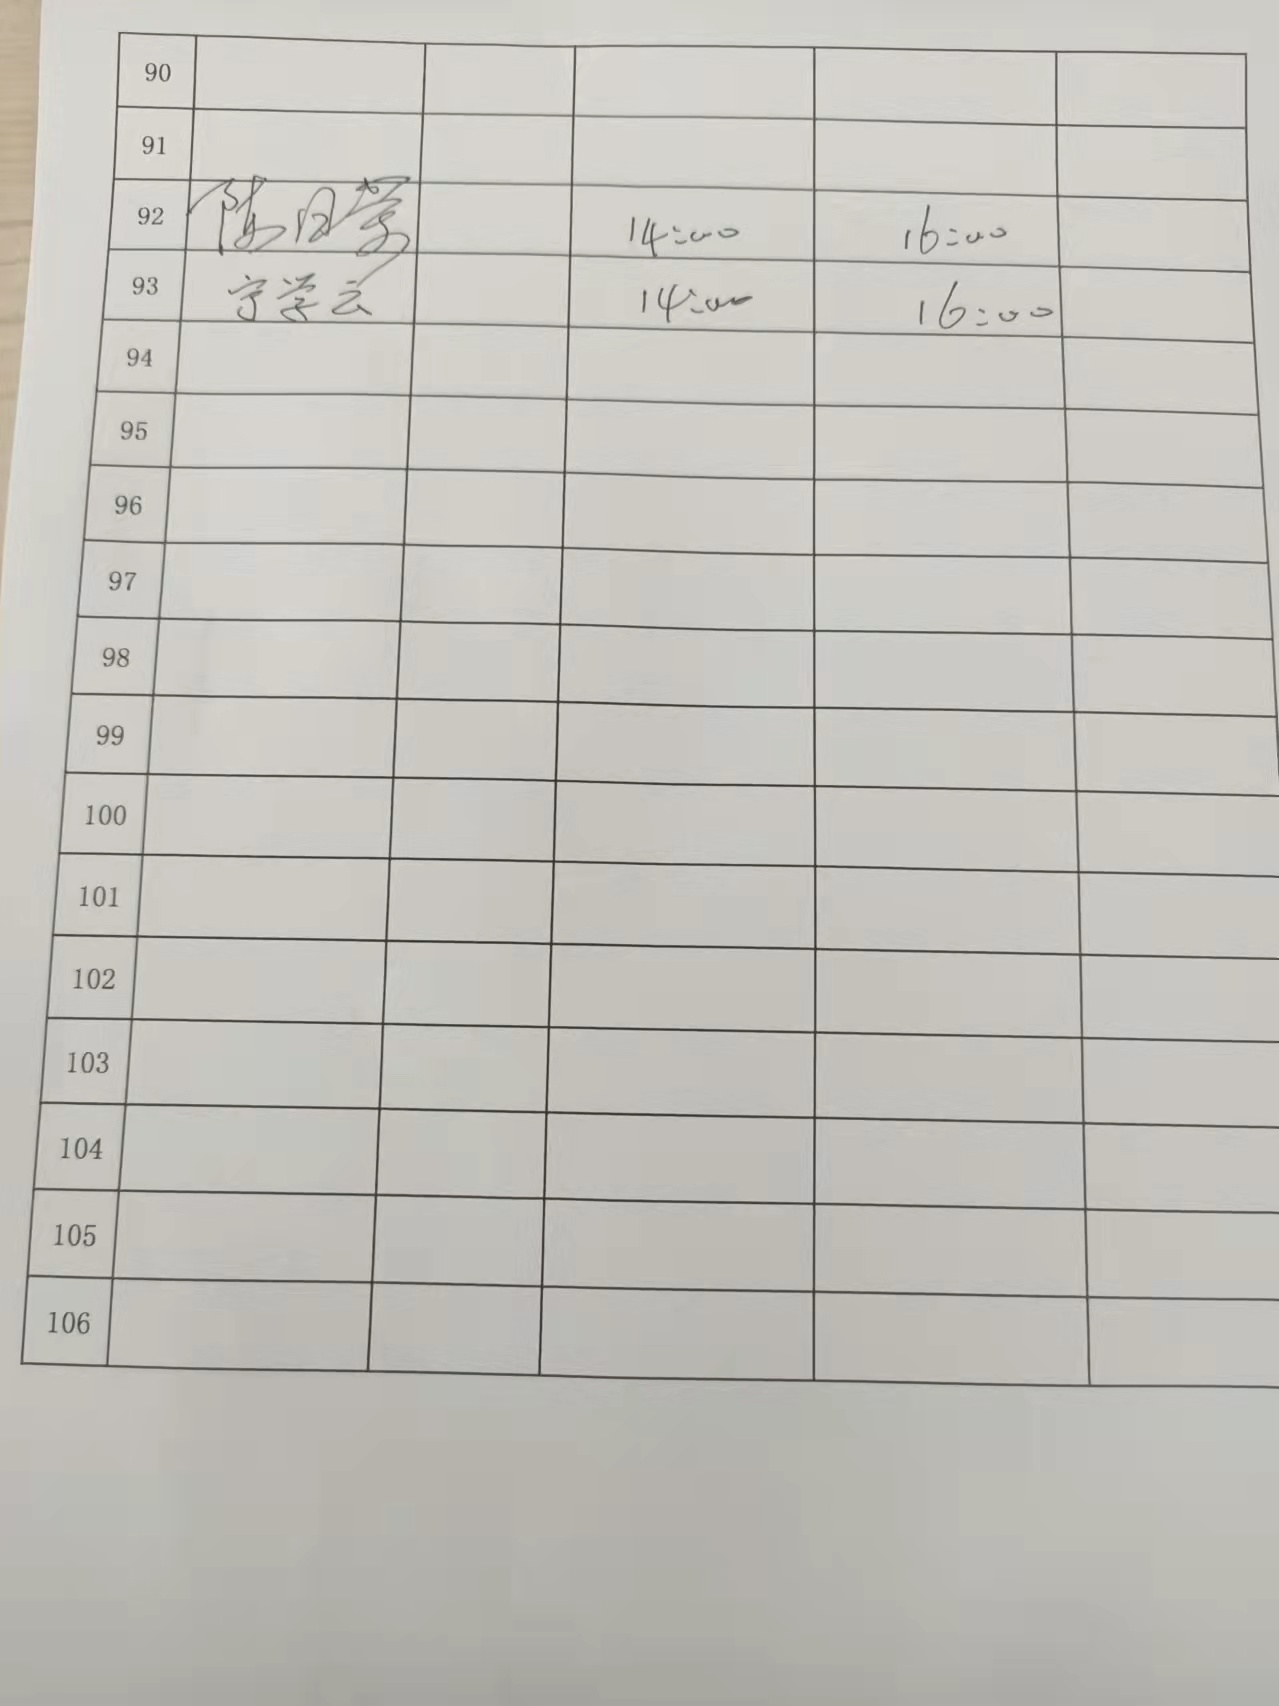 90
91
92 14:00 16:00
93 宁学云 14:00 16:00
94
95
96
97
98
99
100
101
102
103
104
105
106